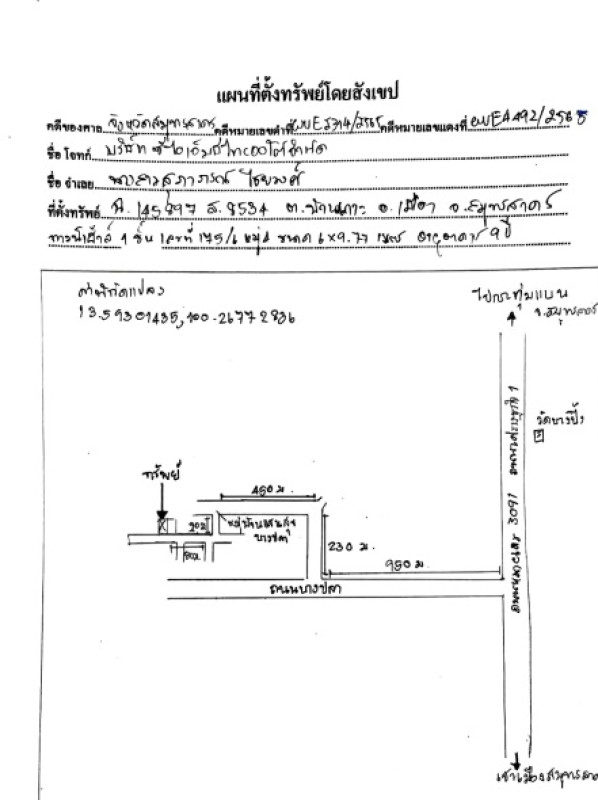 แผนที่ตั้งทรัพย์โดยสังเขป
คดีของศาล จังหวัดสมุทรสาคร คดีหมายเลขดำที่ ผบE5714/2565 คดีหมายเลขแดงที่ ผบE4492/2565
ชื่อ โจทก์ บริษัท จำกัด
ชื่อ จำเลย นางสาวสุภาภรณ์ ไชยวงศ์
ที่ตั้งทรัพย์ ฉ. 145897 ล. 8534 ต.บ้านเกาะ อ.เมือง จ.สมุทรสาคร
ทาวน์เฮ้าส์ 1 ชั้น เลขที่ 175/6 หมู่ 4 ขนาด 6x9.77 เมตร อายุอาคาร 9 ปี
ค่าพิกัดแปลง
13.59301435,100.26772836
ไปกระทุ่มแบน
จ.สมุทรสาคร
วัดบางปิ้ง
ถนนทางหลวง 3091 ถนนเศรษฐกิจ 1
ทรัพย์
450 ม.
20ม
หมู่บ้านแสนสุข
บางปลา
80ม
230 ม.
950 ม.
ถนนบางปลา
เข้าเมืองสมุทรสาคร